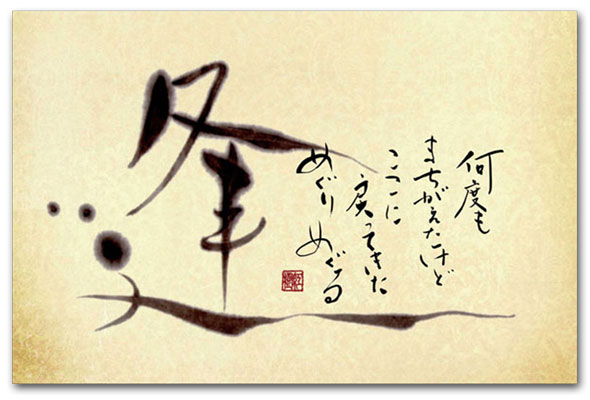 逢
何度も
まちがえたけど
ここに
戻ってきた
めぐり めぐる